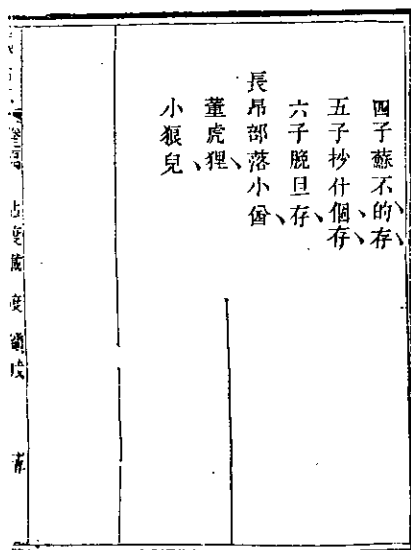 四子蘇不的存
五子抄什個存
六子脫旦存
長昂部落小酋
董虎狸
小狼兒